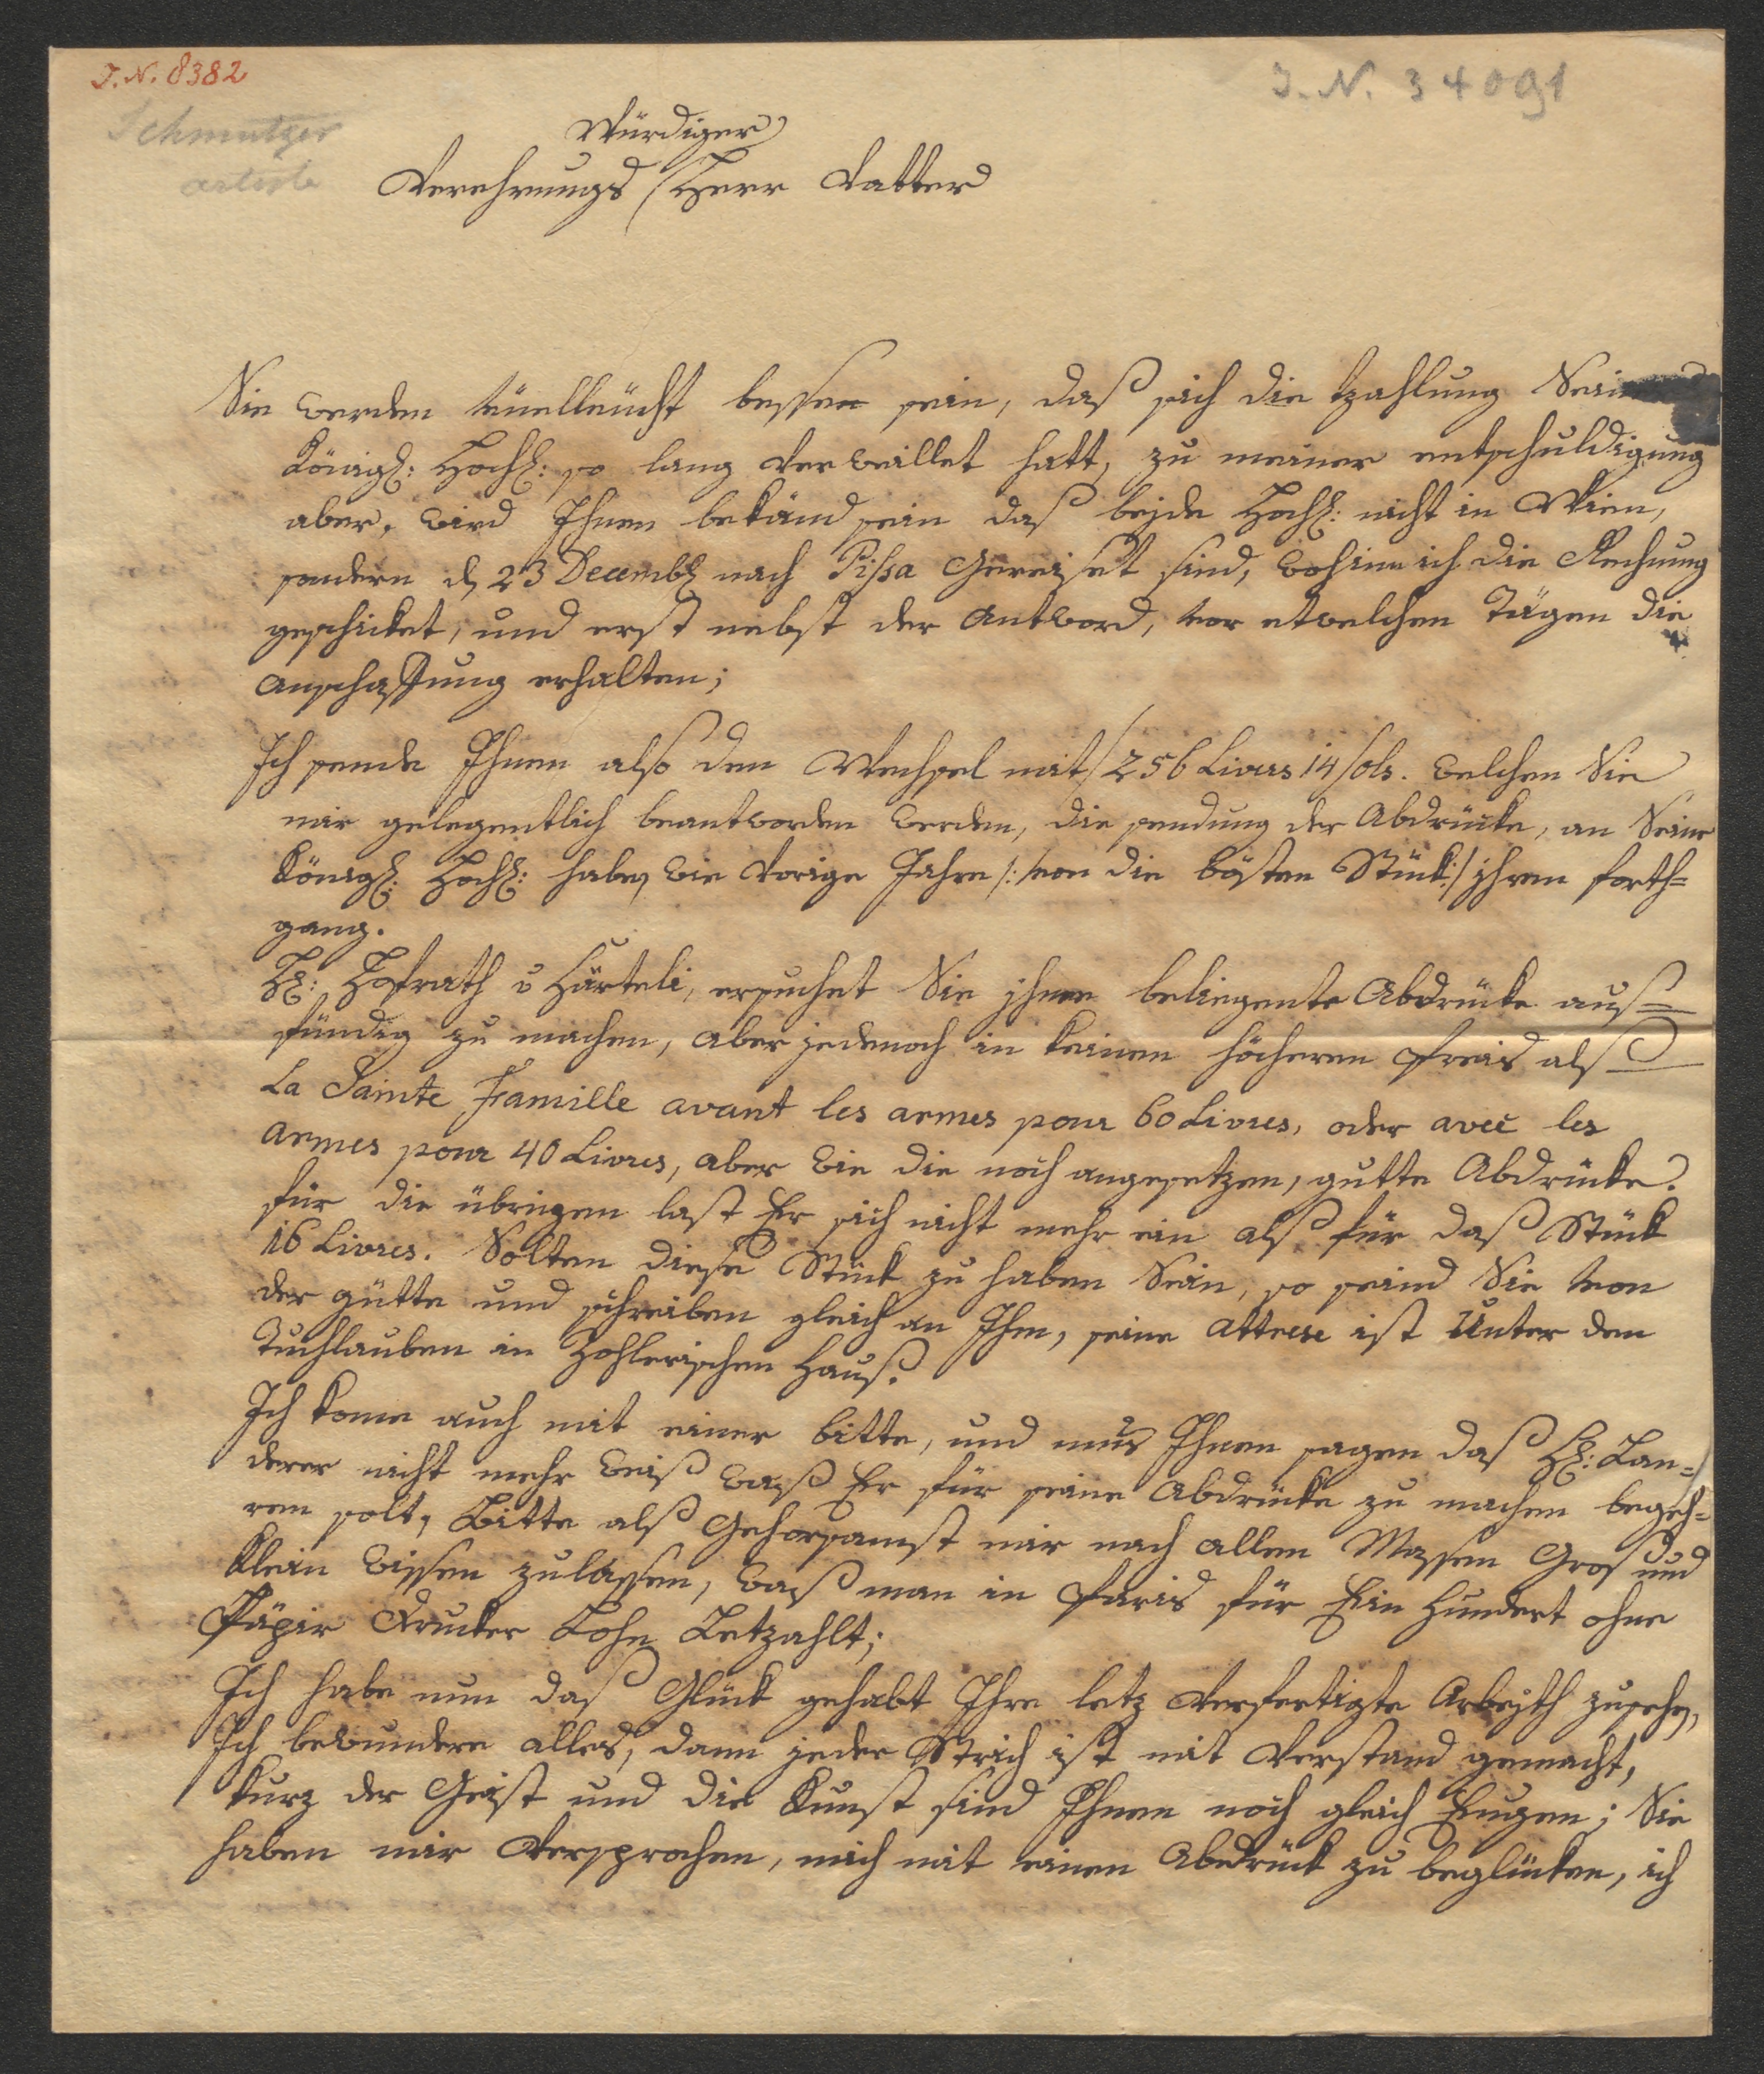 I.N. 8382
I.N. 34091
Schmutzer
artiste
Würdiger
Verehrungs Herr Vatter
Sie werden villeicht besser sein, daß sich die tzahlung Sein
Königl: Hochl: so lang verweillet hatt, zu meiner entschuldigung
aber, wird Ihnen bekand sein daß beyde Hochl: nicht in Wien,
sondern d 23 Decembr nach Pissa Gereiset sind, wohinn ich die Rechnung
geschicket, und erst nebst der Antword, vor etwelchen Tägen die
Anschaffung erhalten;
Ich sende Ihnen also den Wechsel mit/256 Livres 14 sols. welchen Sie
mir gelegentlich beantworden werden, die sendung der Abdrücke, an Seine
Königl: Hochl: haben wie Vorige Jahre /: von die bösten Stück :/ ihren forth=
gang.
Hr: Hofrath v Härteli, ersuchet Sie ihme beliegente Abdrücke auß=
fündig zu machen, aber jedenoch in keinen höcheren Preis alß
La Sainte Familie avant les armes pour 60 Livres, oder avec les
armes pour 40 Livres, aber wie die noch angesetzen, gutte Abdrücke.
für die übrigen last Er sich nicht mehr ein alß für daß Stück
16 Livres. Solten diese Stück zu haben Sein, so seind Sie von
der gütte und schreiben gleich an Ihm, seine attrese ist Unter den
Tuchlauben in Hohlerischen Hauß.
Ich kome auch mit einer bitte, und mus Ihnen sagen daß Hr: Lan=
derer nicht mehr weiß waß Er für seine Abdrücke zu machen begeh=
ren solt, Bitte alß Gehorsamst mir nach allen Massen Groß und
klein wissen zulassen, waß man in Paris für Ein Hundert ohne
Päpir Drucker Lohn Betzahlt;
Ich habe nun daß Glück gehabt Ihre letz Verfertigte Arbeyth zusehen,
Ich bewundere alles, dann jeder Strich ist mit Verstand gemacht,
kurz der Geist und die Kunst sind Ihnen noch gleich Eugen; Sie
haben mir Versprochen, mich mit einen Abdrück zu beglücken, ich